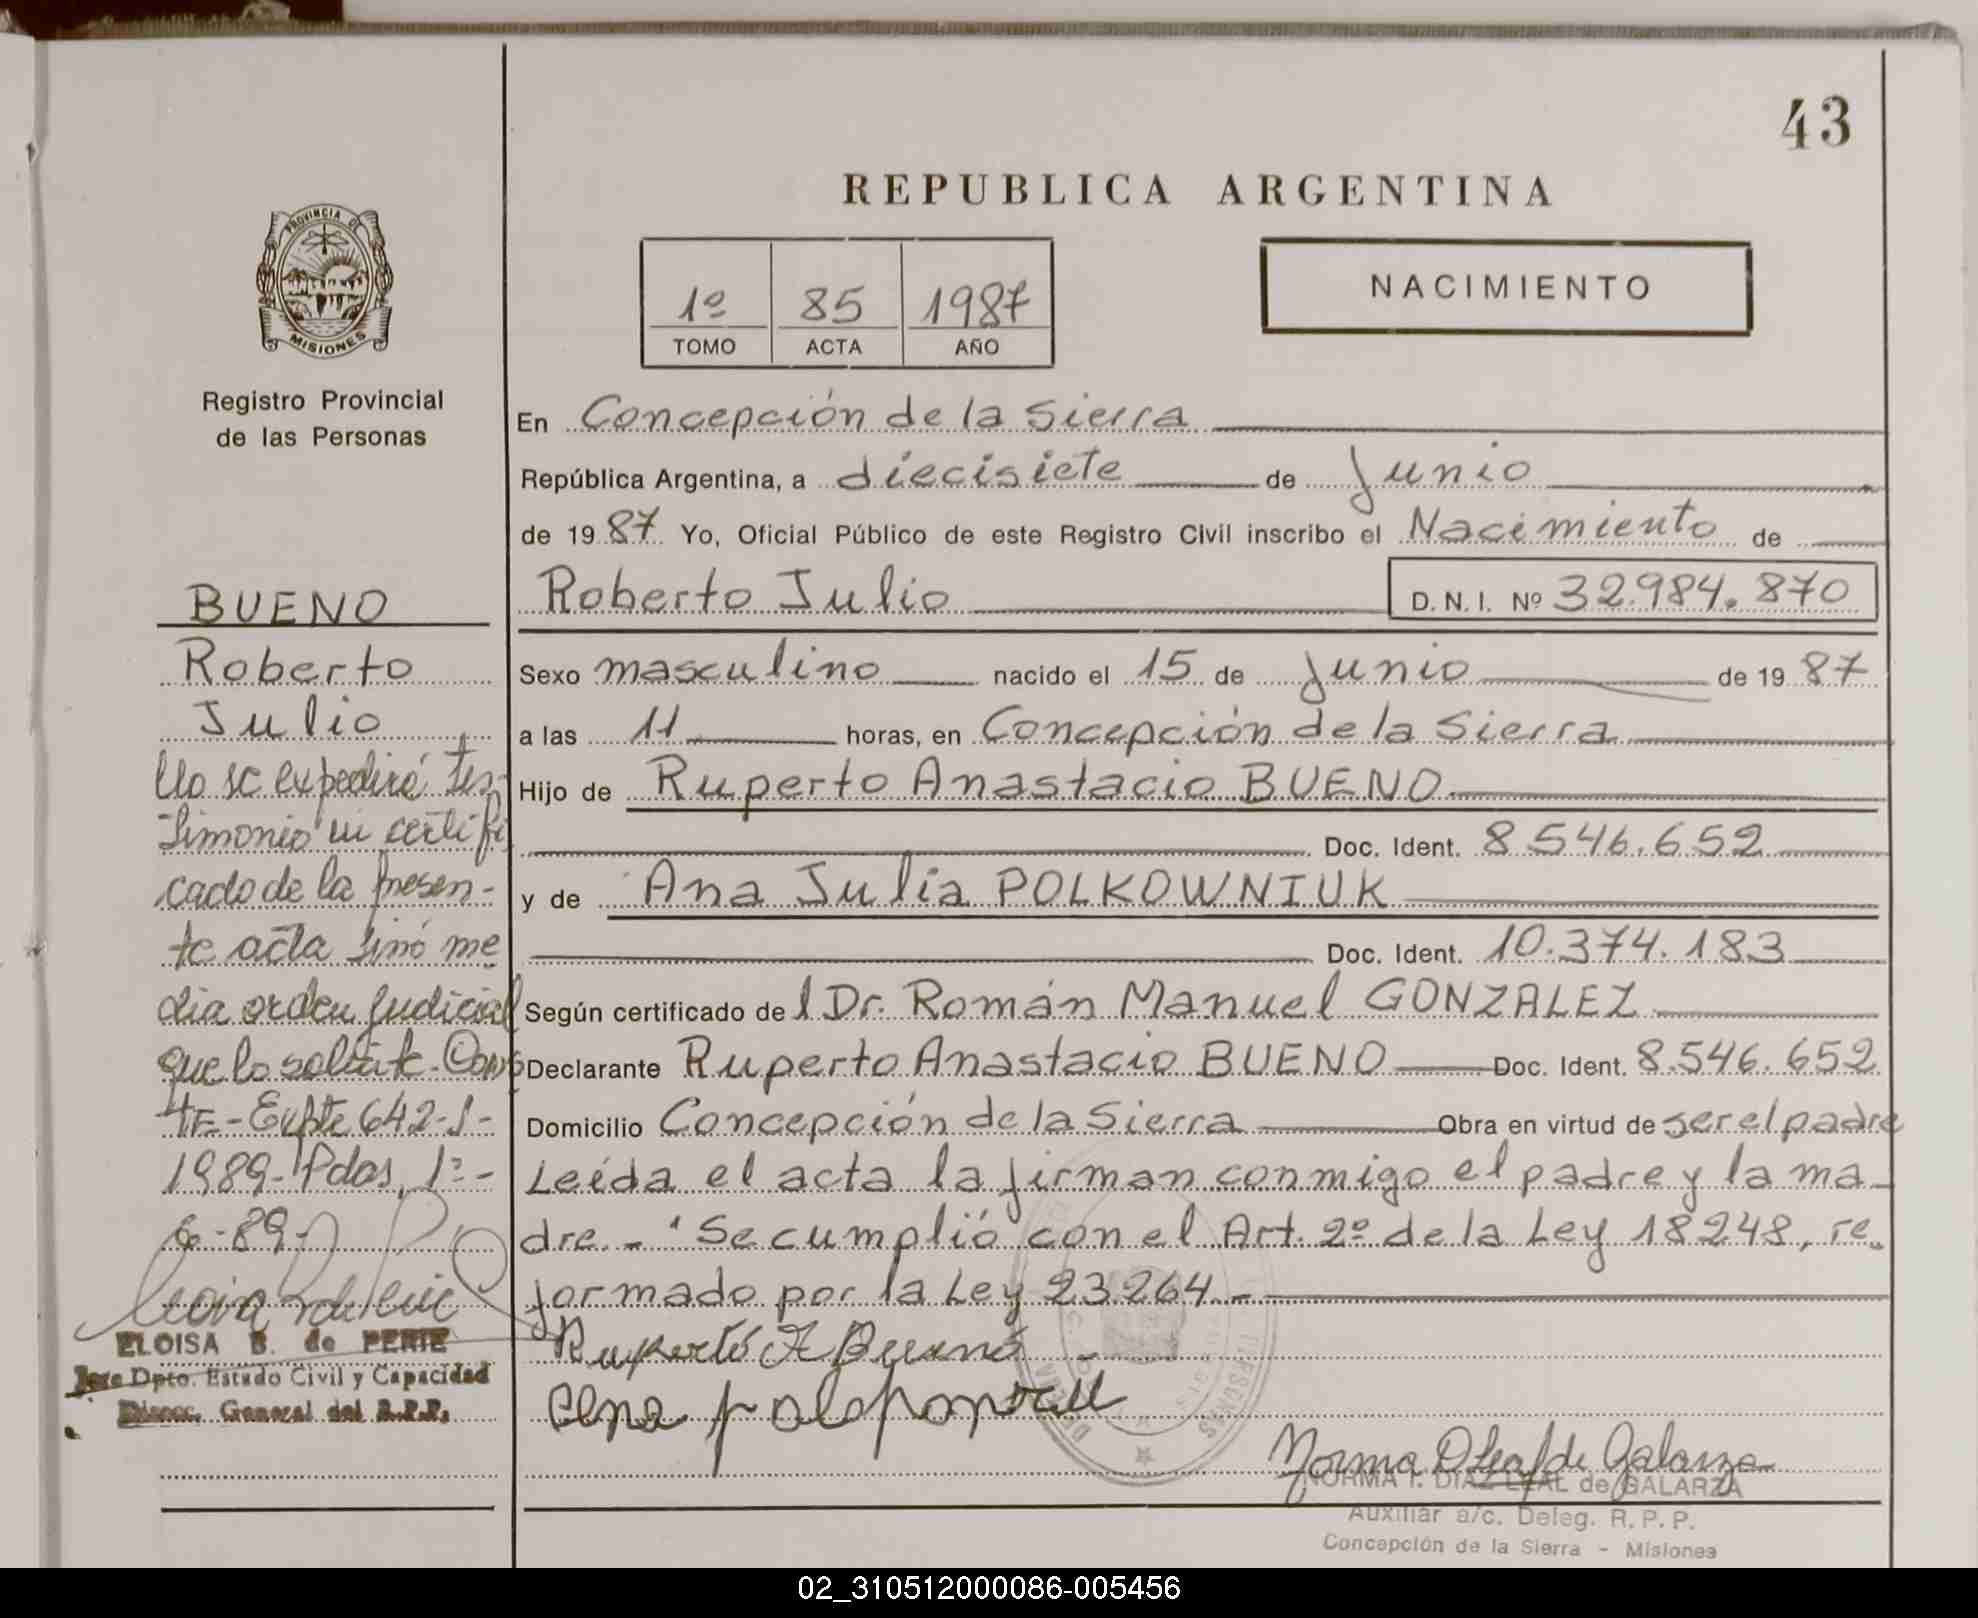 43
REPUBLICA ARGENTINA
1º 85 1987
TOMO ACTA AÑO
NACIMIENTO
PROVINCIA DE
MISIONES
Registro Provincial
de las Personas
BUENO
Roberto
Julio
No se expedirá tes-
timonio ni certifi
cado de la presen-
te acta sinó me
dia orden judicial
que lo solicite. Cons
te - Expte 642-J-
1989- Pdas, 1º-
6-89-
ELOISA B. de PERIE
Jefe Dpto. Estado Civil y Capacidad
Direcc. General del R.P.P.
En Concepción de la Sierra
República Argentina, a diecisiete de Junio
de 1987 Yo, Oficial Público de este Registro Civil inscribo el Nacimiento de
Roberto Julio D. N. I. Nº 32.984.870
Sexo masculino nacido el 15 de Junio de 1987
a las 11 horas, en Concepción de la Sierra
Hijo de Ruperto Anastacio BUENO
Doc. Ident. 8.546.652
y de Ana Julia POLKOWNIUK
Doc. Ident. 10.374.183
Según certificado del Dr. Román Manuel GONZALEZ
Declarante Ruperto Anastacio BUENO Doc. Ident. 8.546.652
Domicilio Concepción de la Sierra Obra en virtud de ser el padre
Leída el acta la firman conmigo el padre y la ma-
dre.- Se cumplió con el Art. 2º de la Ley 18248, re-
formado por la Ley 23264.-
Ruperto A Bueno
Norma D Leal de Galarza
NORMA I. DIAZ LEAL de GALARZA
Auxiliar a/c. Deleg. R. P. P.
Concepción de la Sierra - Misiones
02_310512000086-005456